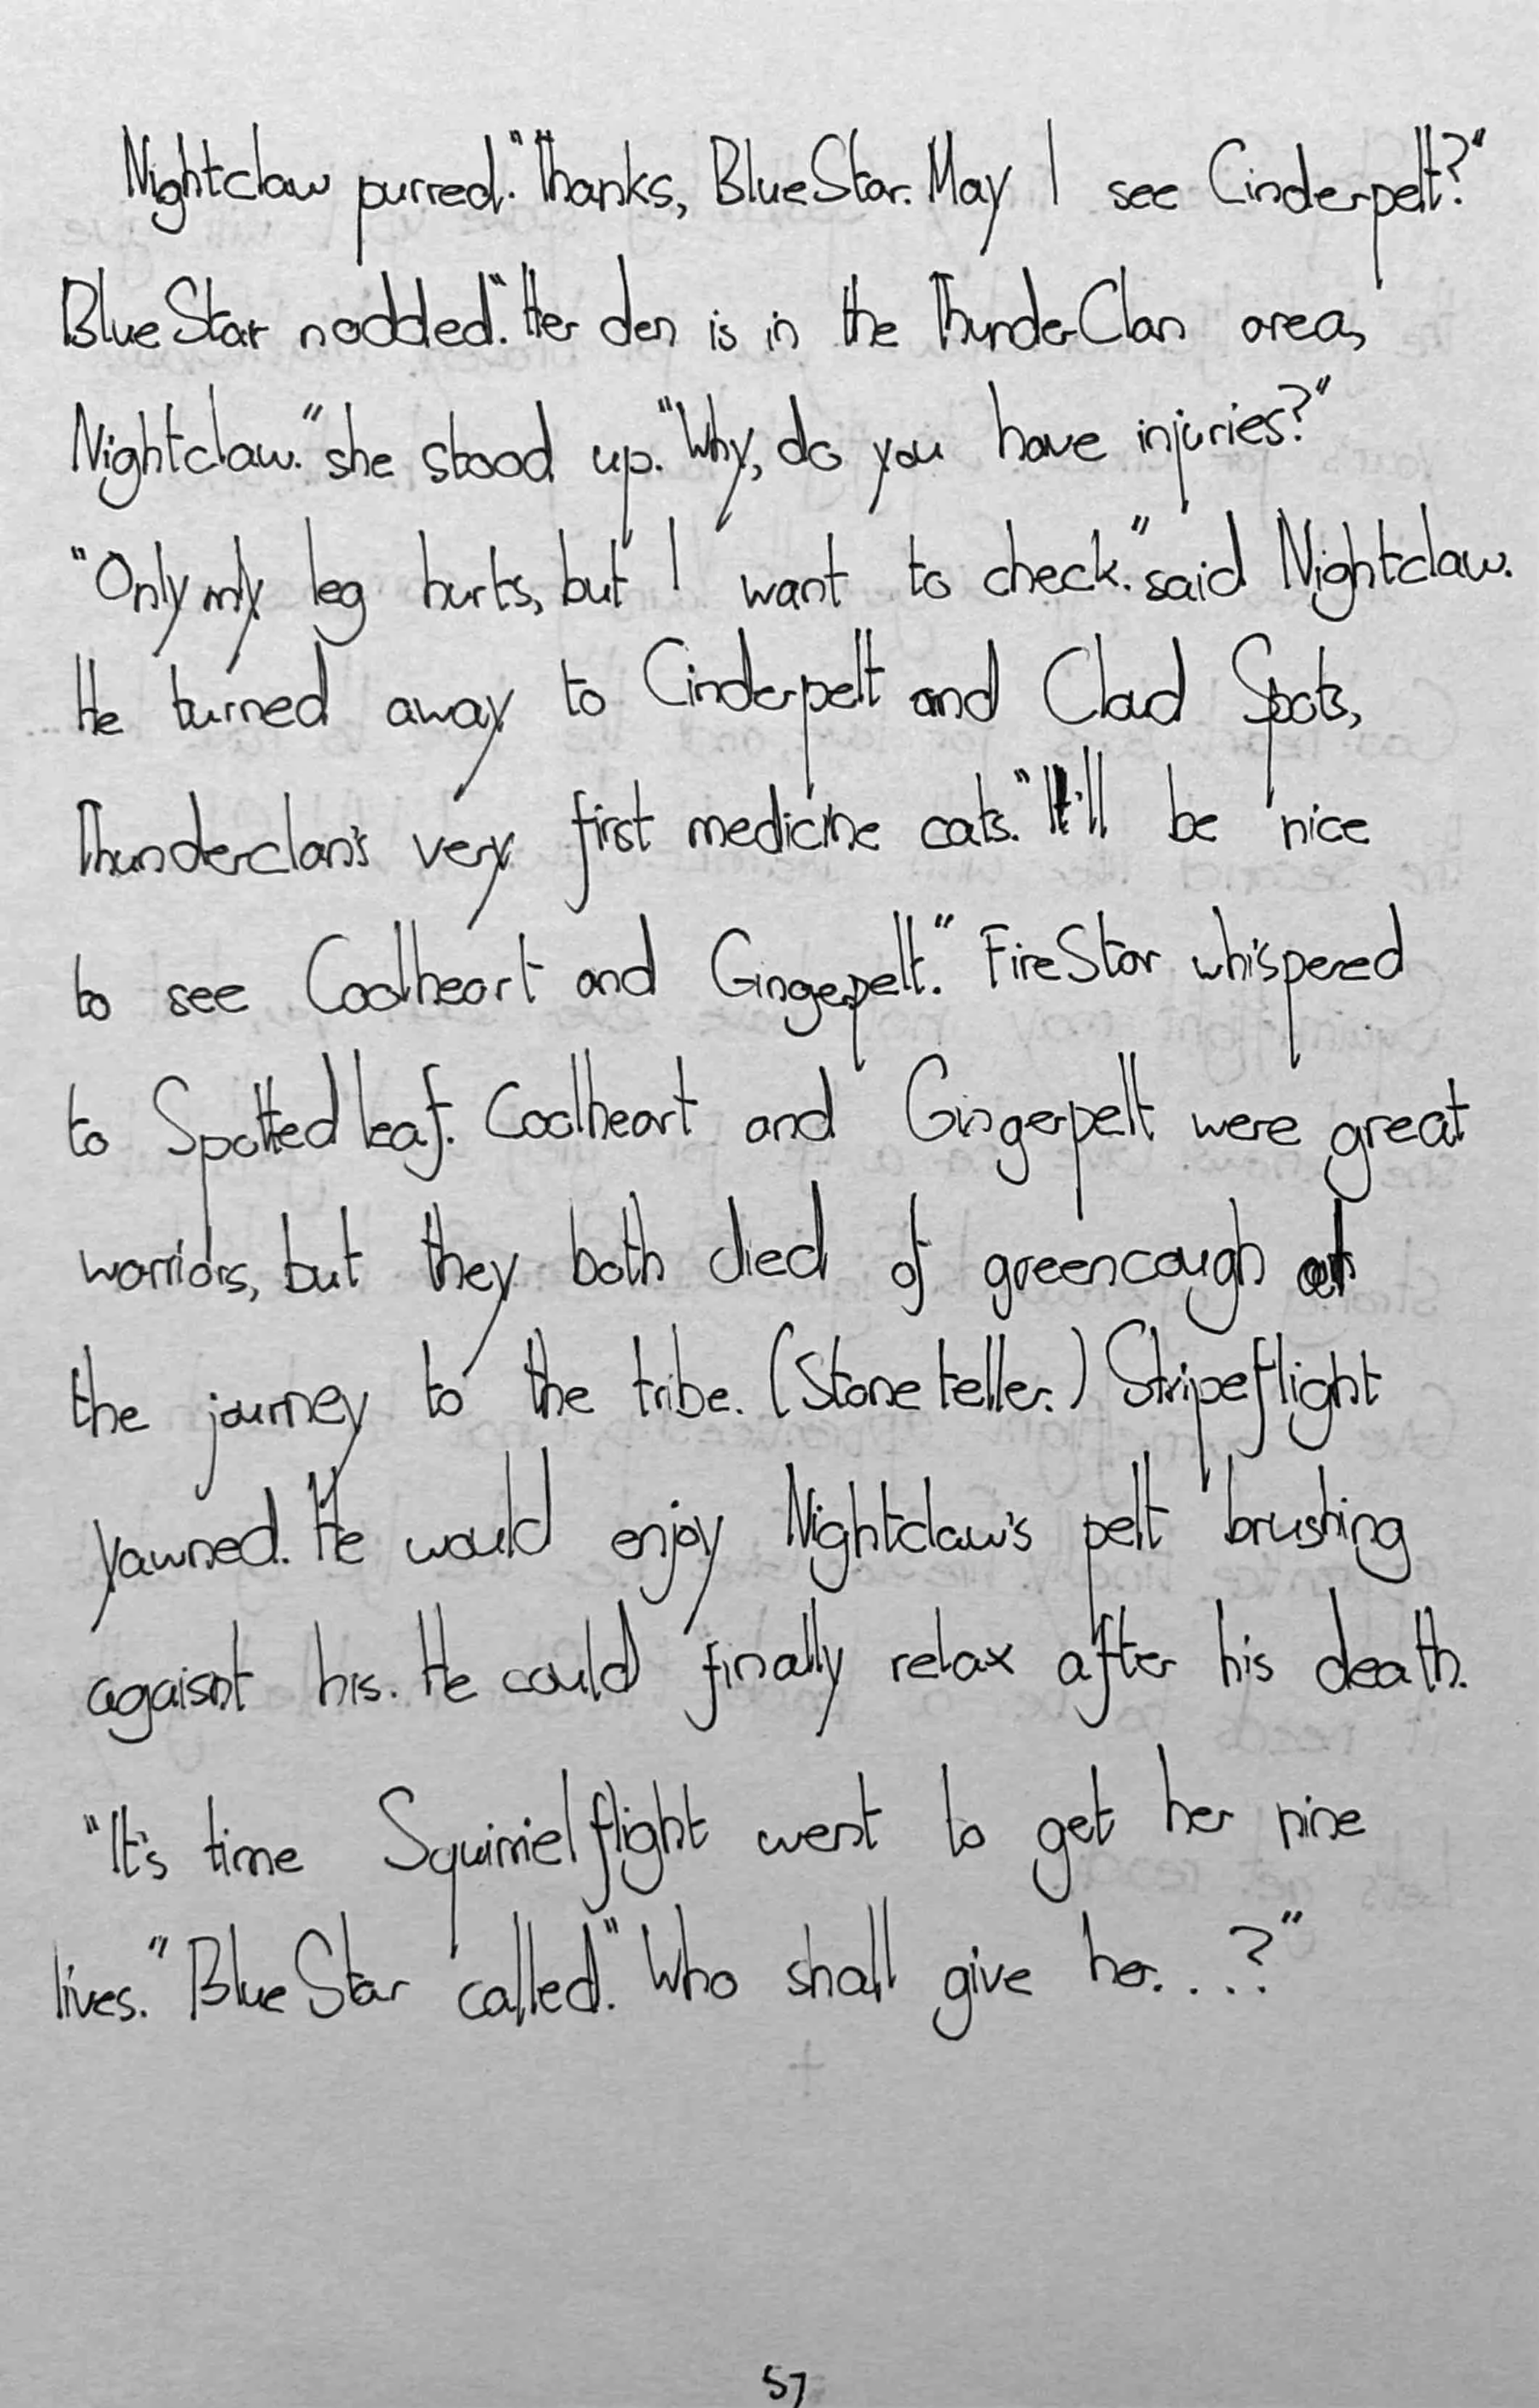 Nightclaw purred. "Thanks, BlueStar. May I see Cinderpelt?"
BlueStar nodded. "Her den is in the ThunderClan area,
Nightclaw." she stood up. "Why, do you have injuries?"
"Only my leg hurts, but I want to check." said Nightclaw.
He turned away to Cinderpelt and Cloud Spots,
Thunderclan's very first medicine cats. "It'll be nice
to see Coolheart and Gingerpelt." FireStar whispered
to Spottedleaf. Coolheart and Gingerpelt were great
warriors, but they both died of greencough at
the journey to the tribe. (Stoneteller.) Stripeflight
yawned. He would enjoy Nightclaw's pelt brushing
agaisnt his. He could finally relax after his death.
"It's time Squirrielflight went to get her nine
lives." BlueStar called. "Who shall give her....?"
57